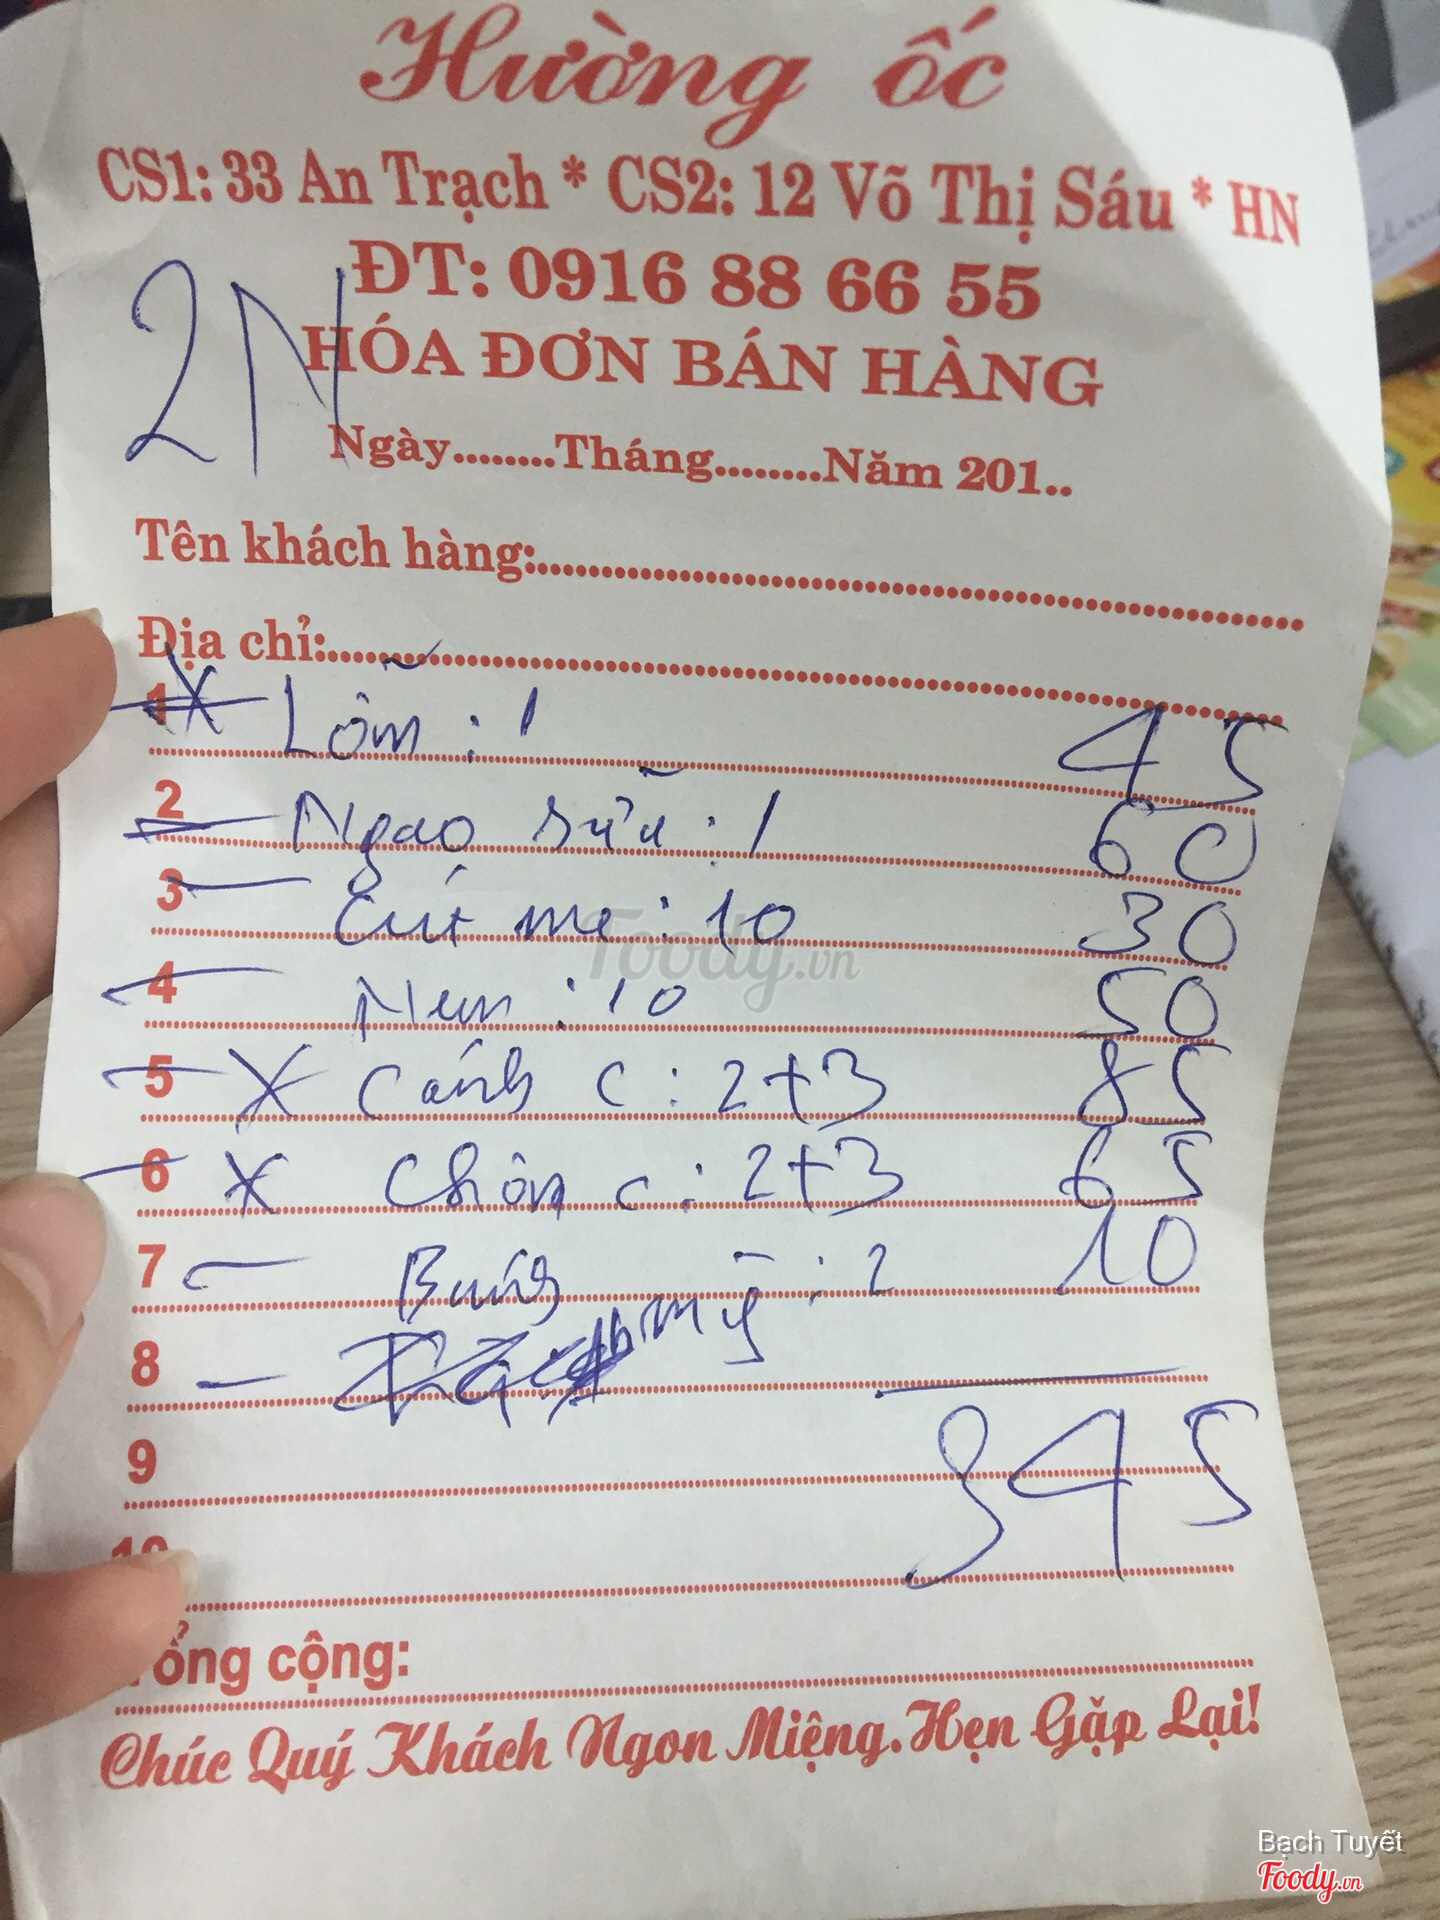 Hường ốc
CS1: 33 An Trạch * CS2: 12 Võ Thị Sáu * HN
ĐT: 0916 88 66 55
2N
HÓA ĐƠN BÁN HÀNG
Ngày........Tháng........Năm 201..
Tên khách hàng:
Địa chỉ:
1 Lỗm : 1 45
2 Ngao sữa : 1 60
3 Cút me : 10 30
4 Nem : 10 50
5 Cánh c : 2+3 85
6 Chân c : 2+3 65
7 Bánh mỹ : 2 10
8
9 345
10
Tổng cộng:
Chúc Quý Khách Ngon Miệng. Hẹn Gặp Lại!
Foody.vn
Bạch Tuyết
Foody.vn